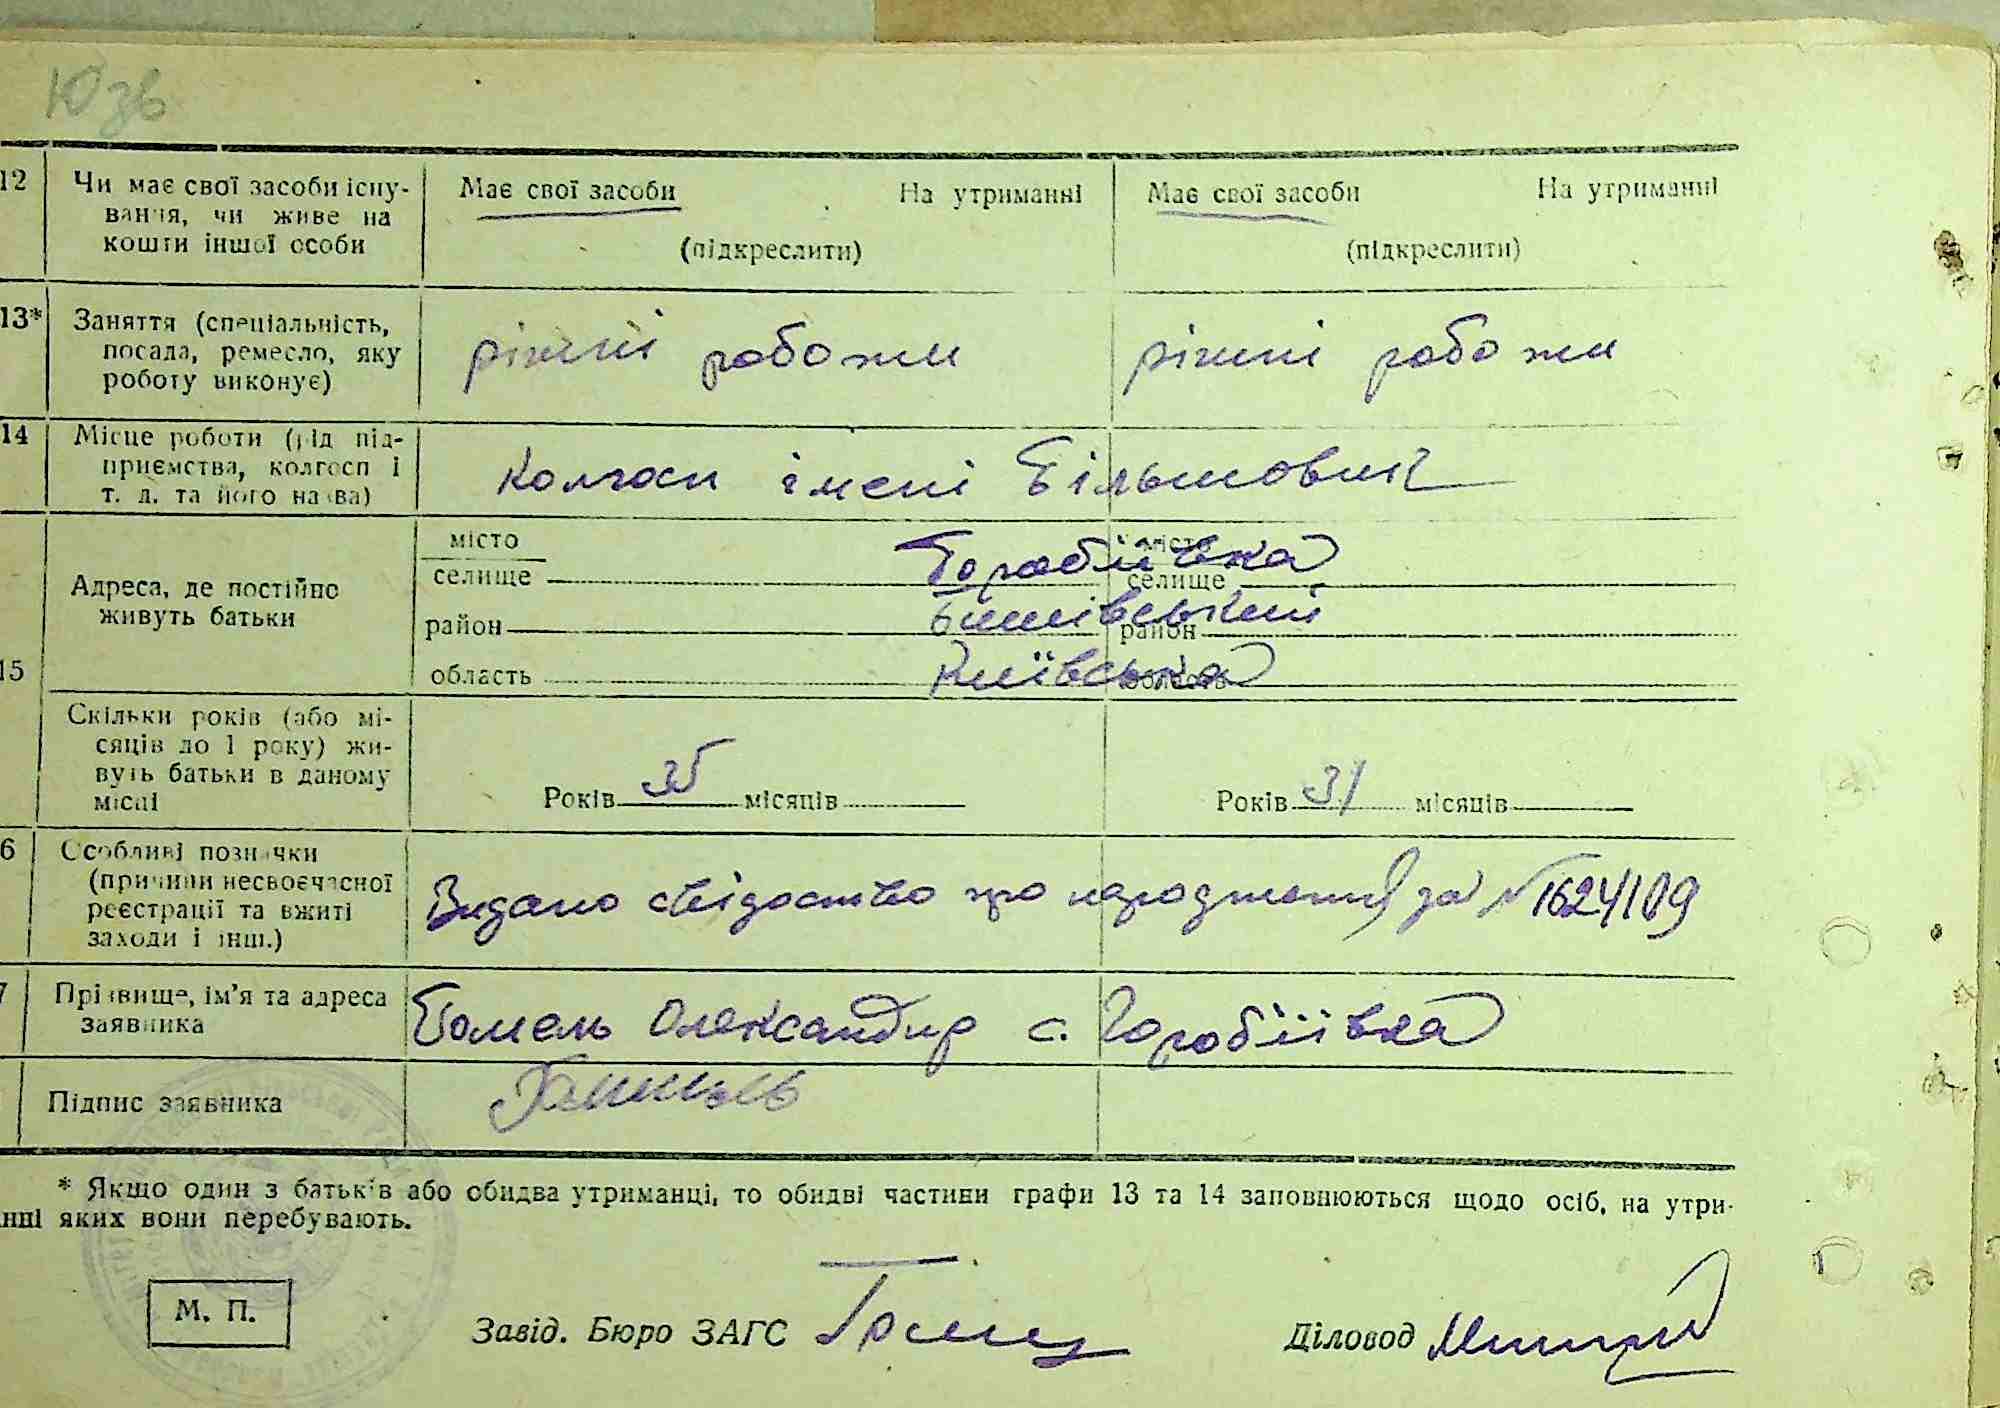 Юзв
12 Чи має свої засоби існу- Має свої засоби На утриманні Має свої засоби На утриманні
вання, чи живе на
кошти іншої особи (підкреслити) (підкреслити)
13* Заняття (спеціальність, різні роботи різні роботи
посада, ремесло, яку
роботу виконує)
14 Місце роботи (рід під-
приємства, колгосп і колгосп імені
т. д. та його назва)
15 Адреса, де постійно
живуть батьки
місто місто
селище Горобіївка селище
район район
область Київська область
Скільки років (або мі-
сяців до 1 року) жи-
вуть батьки в даному
місці
Років 35 місяців Років 31 місяців
6 Особливі позначки
(причини несвоєчасної
реєстрації та вжиті
заходи і інш.)
Видано свідоство про народження за № 1624109
7 Прізвище, ім'я та адреса
заявника
Олександр с. Горобіївка
Підпис заявника
* Якщо один з батьків або обидва утриманці, то обидві частини графи 13 та 14 заповнюються щодо осіб, на утри-
нні яких вони перебувають.
М. П. Завід. Бюро ЗАГС Діловод